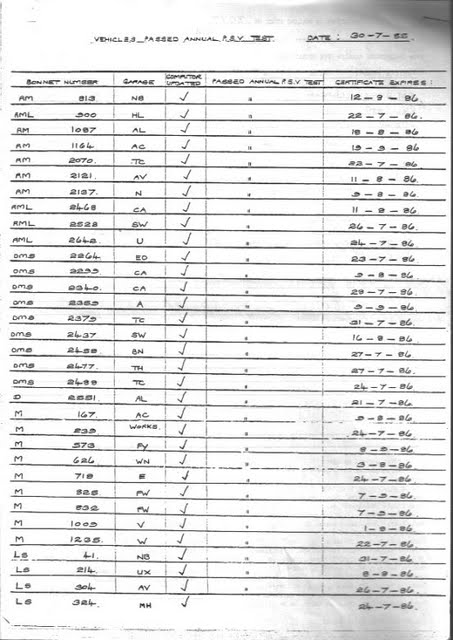 VEHICLES PASSED ANNUAL P.S.V TEST. DATE : 30-7-85
BONNET NUMBER GARAGE COMPUTOR UPDATED PASSED ANNUAL P.S.V TEST CERTIFICATE EXPIRES :
RM 813 NB ✓ " 12-8-86.
RML 900 HL ✓ " 22-7-86.
RM 1087 AL ✓ " 18-8-86.
RM 1164 AC ✓ " 19-9-86.
RM 2070. TC ✓ " 23-7-86.
RM 2121. AV ✓ " 11-8-86.
RM 2137. N ✓ " 9-8-86.
RML 2468 CA ✓ " 11-8-86.
RML 2528 SW ✓ " 26-7-86.
RML 2642. U ✓ " 24-7-86.
DMS 2264. ED ✓ " 23-7-86.
DMS 2299. CA ✓ " 9-8-86.
DMS 2340. CA ✓ " 29-7-86.
DMS 2359 A ✓ " 9-9-86.
DMS 2379 TC ✓ " 31-7-86.
DMS 2437 SW ✓ " 16-8-86.
DMS 2458. BN ✓ " 27-7-86.
DMS 2477. TH ✓ " 27-7-86.
DMS 2488 TC ✓ " 24-7-86.
D 2551 AL ✓ " 21-7-86.
M 167. AC ✓ " 9-8-86.
M 239 WORKS. ✓ " 24-7-86.
M 573 FY ✓ " 8-9-86.
M 626 WN ✓ " 3-8-86.
M 718 E ✓ " 24-7-86.
M 828 FW ✓ " 7-9-86.
M 832 FW ✓ " 7-9-86.
M 1009 V ✓ " 1-8-86.
M 1235. W ✓ " 22-7-86.
LS 41. NB ✓ " 31-7-86.
LS 214. UX ✓ " 8-8-86.
LS 304 AV ✓ " 26-7-86.
LS 324. MH ✓ 24-7-86.